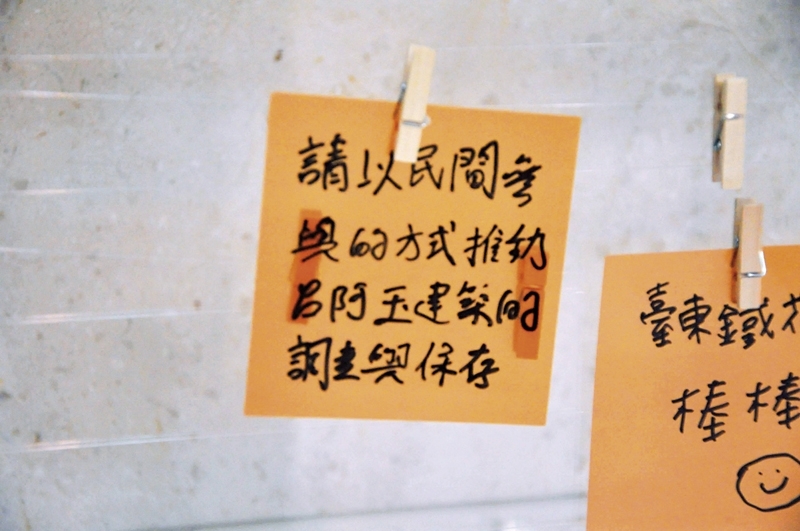 請以民間參
與的方式推動
呂阿玉建築的
調查與保存
臺東鐵花
棒棒